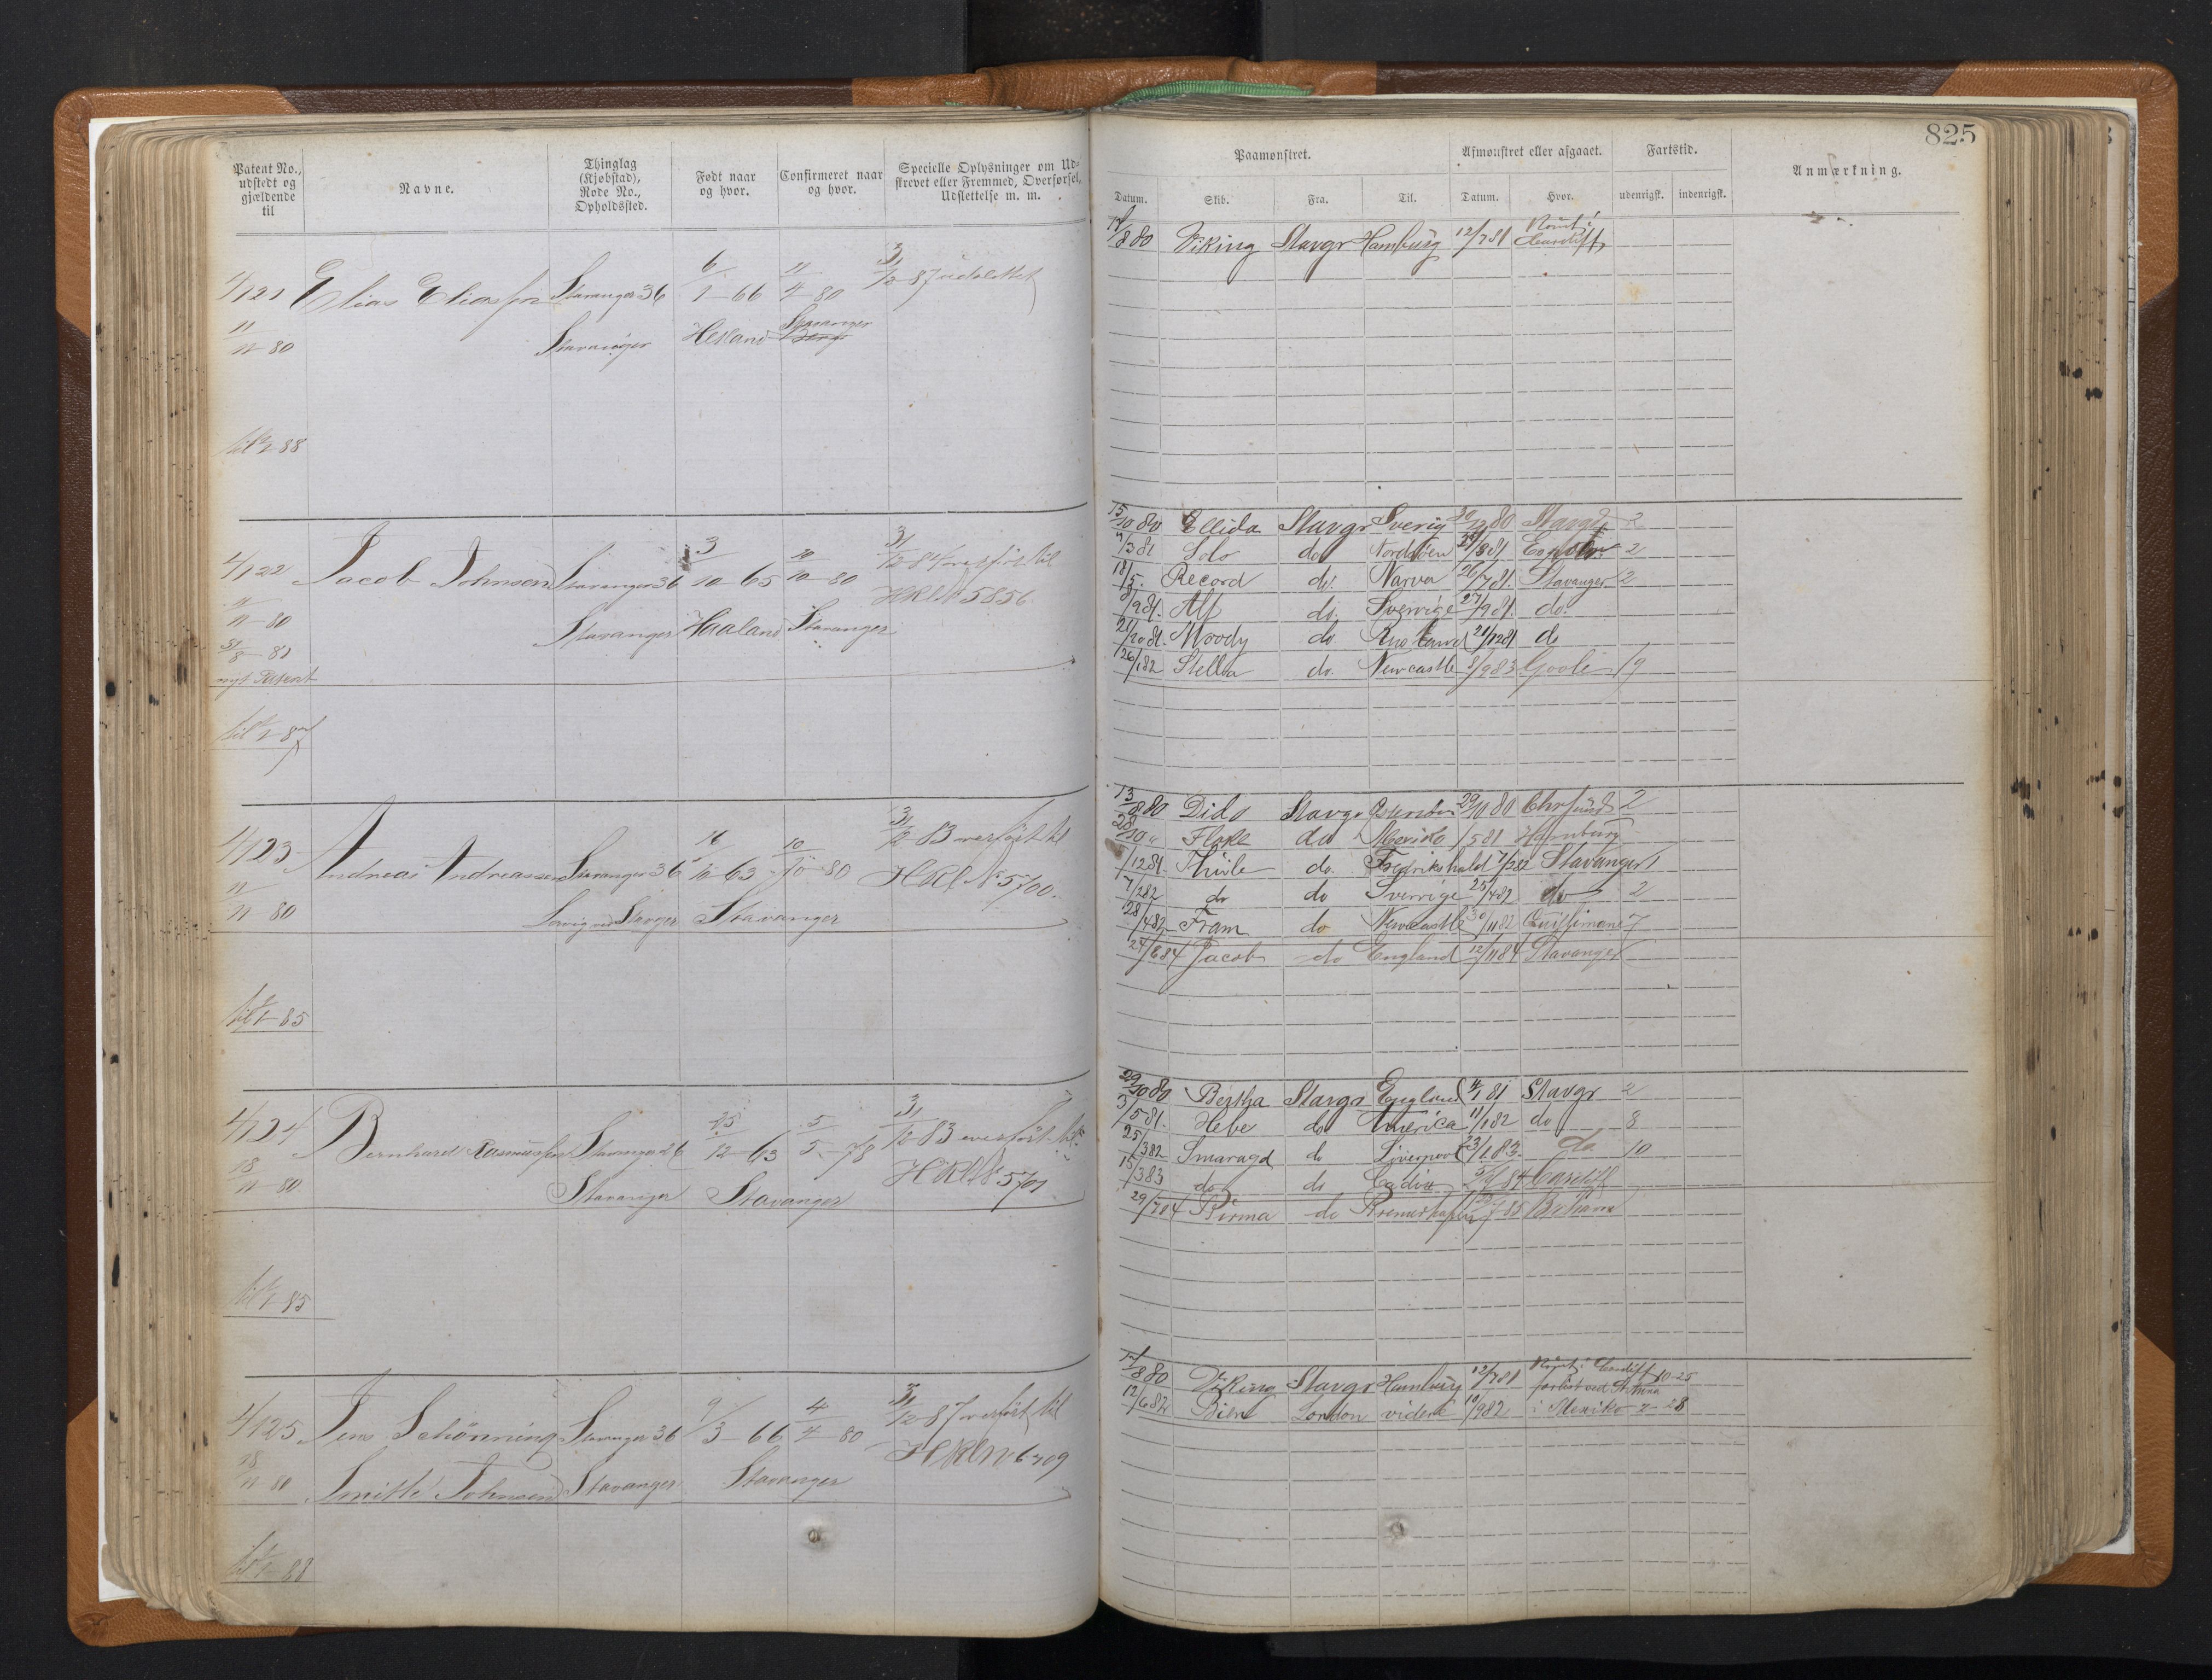 825
Patent No., udstedt og gjældende til
Navne.
Thinglag (Kjøbstad), Rode No., Opholdssted.
Født naar og hvor.
Confirmeret naar og hvor.
Specielle Oplysninger om Udstrevet eller Fremmed, Overførsel, Udslettelse m. m.
Paamønstret.
Afmønstret eller afgaaet.
Fartstid.
Anmærkning.
Datum. Skib. Fra. Til. Datum. Hvor. udenrigsk. indenrigsk.
4121 Elias Eliassen Stavanger 36 6/1-66 11/4-80 31/12-87 udslettet
11/11-80 Stavanger Hetland Stavanger
til 1/1-88
17/8 80 Viking Stavgr Hamburg 12/7 81 Rømt i Cardiff
4122 Jacob Johnsen Stavanger 36 3/10-65 10/10-80 31/12-84 overført til
11/11-80 Stavanger Haaland Stavanger HKl N 5856
31/8-81
nyt Patent
til 1/1-87
15/10 80 Ellida Stavgr Sverig 30/12 80 Stavgr 2
7/3 81 Solo do Nordsøen 28/3 81 2
18/5 Record do. Narva 26/7 81. Stavanger 2
/9 81. Alf do. Sverrige 27/9 81. do.
21/10 81. Moody do. England 21/12 81 do
26/1 82 Stella do. Newcastle 8/9 83 Goole 19
4123 Andreas Andreassen Stavanger 36 16/10-63 10/10-80 31/12-83 overført til
11/11 80 Stavanger HKl N 5700.
til 1/1-85
13/8 80 Dido Stavgr 29/10 80 Chrsund 2
28/10 " do /5 81 Hamburg
/12 81. Thule do. Fredrikshald 7/2 82 Stavanger 1
7/2 82 do do Sverrige 25/4 82 do 2
28/4 82 Fram do Newcastle 30/11 82 7
24/6 84 Jacob do England 12/11 84 Stavanger
4124 Bernhard Rasmussen Stavanger 26 25/12-63 5/5-78 31/12 83 overført til
18/11-80 Stavanger Stavanger HKl N 5701
til 1/1-85
29/10 80 Bertha Stavgr England 4/1 81 Stavgr 2
3/5 81. Hebe do America 11/1 82 do 8
25/3 82 Smaragd do Liverpool 23/1 83 do. 10
15/3 83 do do Cadix 84 Cardiff
29/7 84 Birma do Bremerhafen 85
4125 Jens Schönning Stavanger 36 9/3-66 4/4-80 31/12-87 overført til
18/11 80 Smith Johnsen Stavanger Stavanger HKl N 6709
til 1/1-88
17/8 80 Viking Stavgr Hamburg 12/7 81 Rømt i Cardiff 10-25
12/6 82 Bien London videre 10/9 82 forlist ved
i Mexiko 2-28